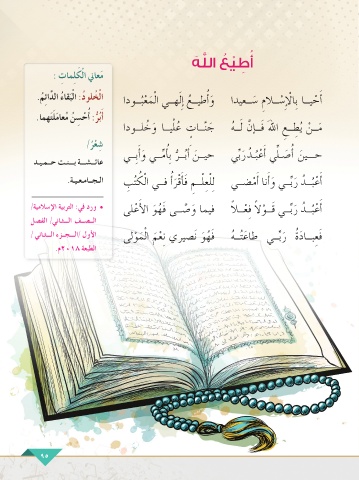 أُطِيْعُ اللَّهَ
أَحْيا بِالْإِسْلامِ سَعيدا وَأُطيعُ إِلَهي الْمَعْبُودا
مَنْ يُطِعِ اللهَ فَإِنَّ لَهُ جَنّاتٍ عُلْيا وَخُلودا
حينَ أُصَلّي أَعْبُدُ رَبّي حينَ أَبَرُّ بِأُمّي وَأَبي
أَعْبُدُ رَبّي وَأَنا أَمْضي لِلْعِلْمِ فَأَقْرَأُ في الْكُتُبِ
أَعْبُدُ رَبّي قَوْلاً فِعْلاً فيما وَصّى فَهُوَ الأَعْلى
فَعِبادَةُ رَبّي طاعَتُهُ فَهُوَ نَصيري نِعْمَ الْمَوْلى
مَعاني الْكَلِماتِ :
الْخُلودُ: الْبَقاءُ الدّائِمُ.
أَبَرُّ: أُحْسِنُ مُعامَلَتَهما.
شِعْرُ/
عائشة بنت حميد
الجامعية.
• ورد في: التربية الإسلامية/
الصف الثاني/ الفصل
الأول /الجزء الثاني /
الطبعة ٢٠١٨م.
٩٥